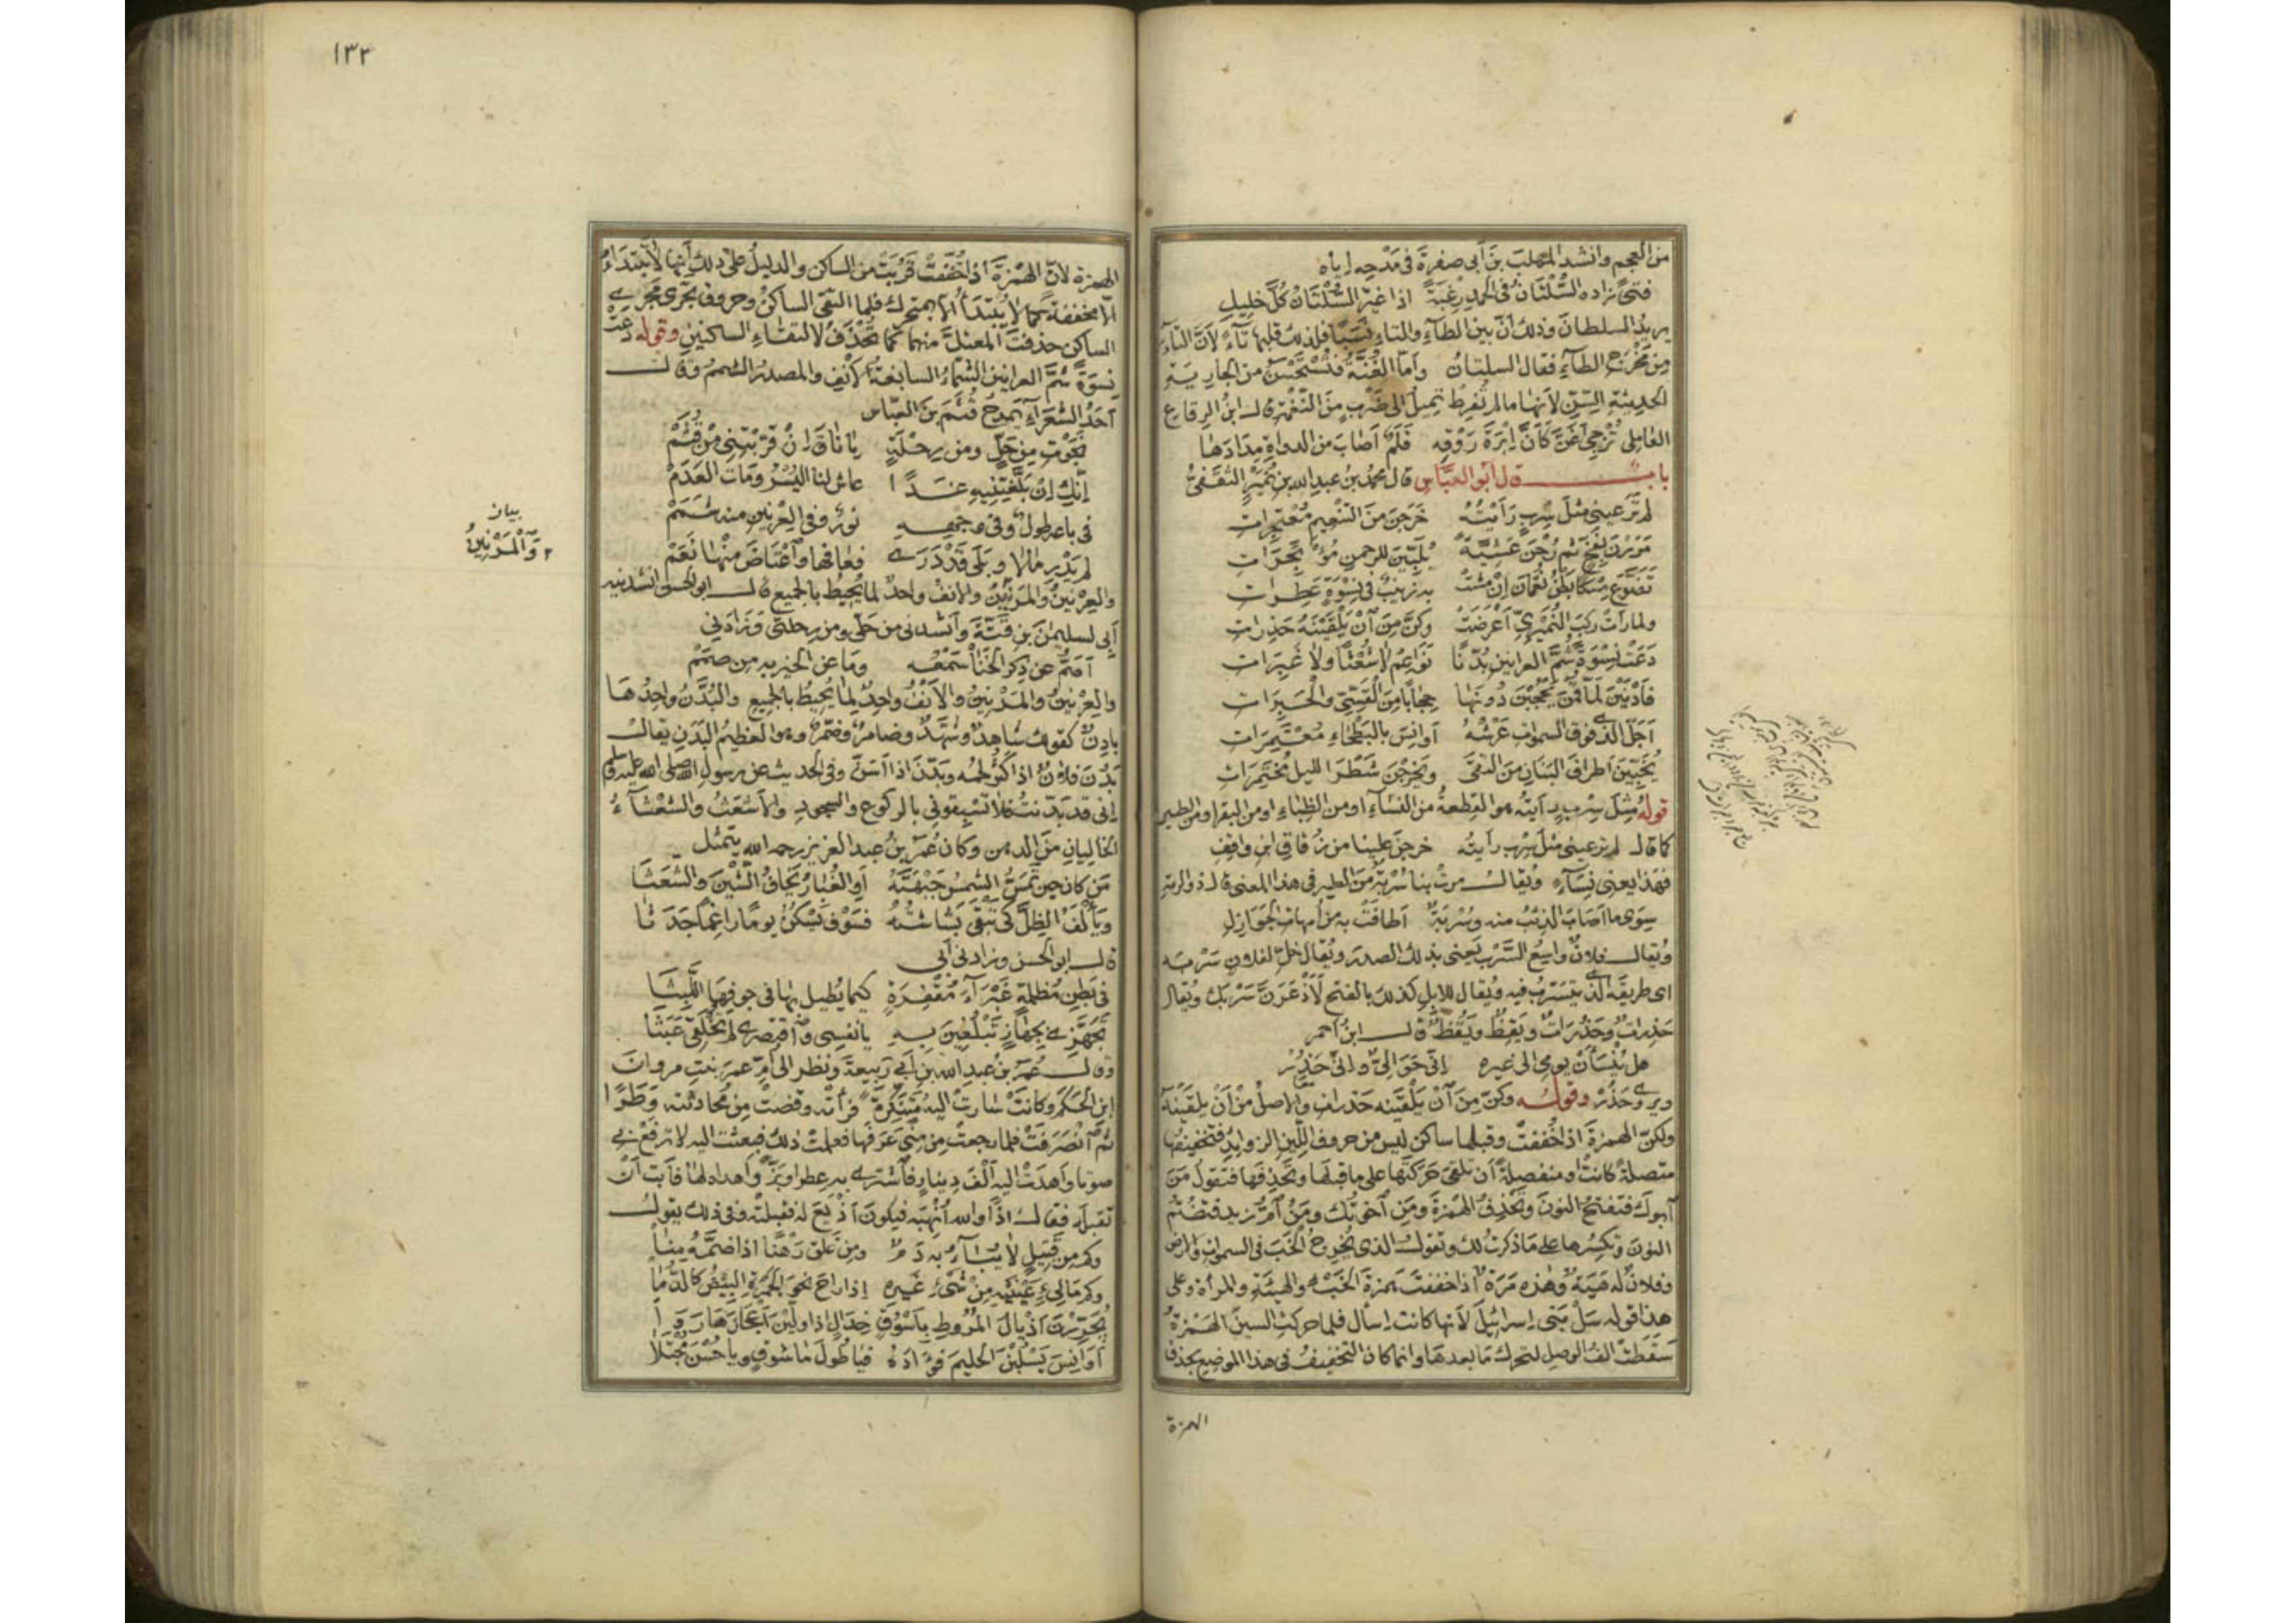 من العجم وانشد المهلب بن أبى صفرة فى مدحه إياه
فتى زاده السُّلْتَانُ فى الحمد رغبةً اذا غيّر السُّلْتَانُ كُلَّ خليلِ
يريد السلطان وذلك أنّ بين الطاء والتاء نسَبًا فلذلك قلبها تاءً لأنّ التاء
من مَخْرَجِ الطاءِ فقال السلتان وأمّا الغُنَّةُ فتُسْتَحْسَنُ من الجارية
الحديثة السِّنّ لأنها ما لم تُفرِط تميلُ الى ضَرْبٍ من النَّغْمة قال ابنُ الرقاع
العاملى تُزْجِى أَغَنَّ كَأَنَّ إِبْرَةَ رَوْقِهِ قَلَمٌ أَصَابَ من الدواةِ مِدَادَهَا
باب قال أبو العبّاس قال محمد بنُ عبد الله بن نُمَيْرٍ الثقفىُّ
لم تَرَ عينى مثلَ سِرْبٍ رَأَيْتُهُ خَرَجْنَ مِنَ التَّنْعِيمِ مُعْتَجِرَاتِ
مَرَرْنَ بِفَخٍّ ثم رُحْنَ عَشِيَّةً يُلَبِّينَ للرحمنِ مُؤْتَجِرَاتِ
تَضَوَّعَ مِسْكًا بَطْنُ نُعْمَانَ إِنْ مَشَتْ به زينبٌ فى نِسْوَةٍ عَطِرَاتِ
ولما رأت ركبَ النُّمَيْرِىِّ أَعْرَضَتْ وكُنَّ مِنَ آنْ يَلْقَيْنَهُ حَذِرَاتِ
دَعَتْ نِسْوَةً شُمَّ العرانينِ بُدَّنًا نَوَاعِمَ لا شُعْثًا ولا غَبِرَاتِ
فَأَدْنَيْنَ لَمَّا قُمْنَ يَحْجُبْنَ دُونَهَا حِجَابًا مِنَ القَسِّىِّ والحَبِرَاتِ
أَجَلَّ الذى فوقَ السموات عَرْشُهُ أَوَانِسَ بالبَطْحَاءِ مُعْتَمِرَاتِ
يُخَبِّينَ أطرافَ البَنَانِ مِنَ التقى ويَخْرُجْنَ شَطْرَ الليلِ مُخْتَمِرَاتِ
قوله مِثلَ سِرْبٍ رأيته هو القطعةُ من النساءِ او من الظباءِ او من البقر او من الطير
كما قال لم تر عينى مثلَ سِرْبٍ رأيته خرجن علينا من زُقاقِ ابنِ واقفِ
فهذا يعنى نساءً ويقال مرتْ بنا سُرْبَةٌ من الطير فى هذا المعنى قال ذو الرمة
سِوَى ما أصاب الذئبُ منه وسُرْبَةٌ أطافَتْ به من أمهاتِ الجَوَازِلِ
ويقال فلانٌ واسعُ السَّرْبِ يعنى بذلك الصدرَ ويُقال خلِّ لفلانٍ سَرْبَه
اى طريقَه الذى يتسَرَّبُ فيه ويُقال للابلِ كذلك بالفتح لأَذْعَرَنَّ سَرْبَك ويُقال
حَذِراتٌ وحَذُرَاتٌ ويَقِظٌ ويَقُظٌ قال ابنُ احمر
هل يُنْسَأَنْ يومى الى غيره إنّى حَوَالِىٌّ وإنّى حَذُرْ
ويروى وحَذُرْ وقوله وكُنَّ مِنَ آنْ يَلْقَيْنَه حَذِراتِ والاصلُ مِنْ أَنْ يلقَيْنَه
ولكنّ الهمزةَ اذا خُففتْ وقبلها ساكن ليس من حروف اللين الزوايد فتخفيفها
متصلةً كانتْ او منفصلةً أن تلقى حَرَكَتَها على ما قبلها وتَحْذِفَها فتقول مَنَ
آبوك فتفتحُ النونَ وتَحْذِفُ الهمزةَ ومَنِ آخوتُك ومَنُ آمُّ زيد فتضُمّ
النونَ وتكسِرُها على ما ذكرتُ لك وتقول الذى يُخرِجُ الخَبَ فى السموات والارض
وفلانٌ له هَيَةٌ وهذه مَرَةٌ اذا خففتَ همزةَ الخَبْءِ والهيئةِ والمرأة وعلى
هذا قوله سَلْ بَنِى إسرائيلَ لأنها كانت إسأل فلما حركت السينَ الهمزةُ
سقطت الفُ الوصلِ لتحرك ما بعدها وانما كان التخفيفُ فى هذا الموضع بحذف
الهمزة
١٣٢
الهمزة لأنّ الهمزة اذا خُففتْ قَرُبَتْ من الساكن والدليلُ على ذلك أنها لا تُبْتَدَأُ
إلّا محففة كما لا يُبْتَدَأُ الا بمتحرك فلما التقى الساكنُ وحروف تجرى مجرى
الساكن حذفتَ المعتلَّ منهما كما تُحْذَفُ لالتقاءِ الساكنينِ وقوله دَعَتْ
نِسْوَةً شُمَّ العرانينِ الشَّمَّاءُ السابغةُ الأنفِ والمصدرُ الشممُ وقال
أحَدُ الشعراءِ يمدحُ قُثَمَ بنَ العباسِ
نَجَوْتِ مِنْ حَلٍّ ومن رِحْلَةٍ يا نَاقَ إنْ قَرَّبْتِنِى مِنْ قُثَمْ
إنّكِ إن بَلَّغْتِنِيهِ غَدًا عاش لنا اليُسْرُ ومَاتَ العَدَمْ
فى باعه طولٌ وفى وجهه نورٌ وفى العِرْنِينِ منه شَمَمْ
لم يَدْرِ ما لا وبَلَى قَدْ دَرَى فعافها واعْتَاضَ مِنْهَا نَعَمْ
والعِرْنينُ والمَرْنِيْنُ والانفُ واحدٌ لما يُحيطُ بالجميع قال ابو الحسن انشدنيه
أبى لسليمنَ بنِ قَتَّةَ وأنشدنى من حَلّى ومن رحلتى وَزَادَنِى
أَصَمُّ عن ذِكرِ الخَنَا سَمْعُهُ ومَا عن الخيرِ به من صَمَمْ
والعِرْنينُ والمَرْنِينُ والأَنْفُ واحدٌ لِمَا يُحِيطُ بالجميعِ والبُدَّنُ واحدُهَا
بادِنٌ كقولك شاهِدٌ وشُهَّدٌ وضامرٌ وضُمَّرٌ وهو العظيمُ البَدَنِ يقال
بَدُنَ فلانٌ اذا كثُر لحمُه وبَدَّنَ اذا اسَنَّ وفى الحديث عن رسولِ الله صلى الله عليه وسلم
إنى قد بَدَّنتُ فلا تَسْبِقونى بالركوع والسجودِ والأشعَثُ والشَّعْثَاءُ
الخاليانِ مَنَ الدهن وكان عُمَرُ بنُ عبد العزيز رحمه الله يتمثل
مَن كان حينَ تَمَسُّ الشمسُ جَبْهَتَهُ أوِ الغُبَارُ يَخَافُ الشَّيْنَ والشَّعَثَا
ويَأْلَفُ الظِلَّ كَى تَبْقَى بَشَاشَتُهُ فسَوْفَ يَسْكُنُ يومًا راغِمًا جَدَثَا
قال ابو الحسن وزادنى أبى
فى بَطْنِ مُظلمةٍ غَبْرَآءَ مُقْفِرَةٍ كَيْمَا يُطِيلَ بها فى جوفِهَا اللَّبَثَا
تَجَهَّزِى بِجَهَازٍ تَبْلُغِينَ بِهِ يا نفسِى واقصرى لم تُخْلَقِى عَبَثَا
وقال عُمَرُ بنُ عبدِ الله بنِ أبى رَبِيعةَ ونظر الى أمّ عمرَ بنتِ مروانَ
ابنِ الحَكَمِ وكانَتْ صارت اليه مُتَنَكِّرَةً فرأته وقضتْ مِنْ مُحَادثَته وَطَرًا
ثُمَّ انْصَرَفَتْ فلما رجعتْ مِن مِنًى عَرَفَها فعلمتْ ذلك فبعثت اليه لا ترفَعْ بى
صوتا واهدَتْ اليه ألْفَ دِينارٍ فاشترى به عِطرا وبَزًّا وأهداه لها فأبَتْ أنْ
تقبلَه فقال اذًا والله أُنْهِبَه فيكونَ أذْيَعَ له فقبلته وفى ذلك يقول
وكم من قَتِيلٍ لا يُبَآءُ به دَمٌ ومِن غَلِقٍ رَهْنًا اذا ضَمَّهُ مِنَا
وكم مَالِىءٍ عَيْنَيْهِ مِنْ شَىْءِ غَيْرِهِ إذا راحَ نحوَ الجَمْرةِ البِيْضُ كالدُّمَا
يُجَرِّرْنَ أذيالَ المُرُوطِ بأَسْوُقٍ خِدَالٍ اذا ولَّيْنَ أعجازَهَا رَوَا
أَوَانِسَ يَسْلُبْنَ الحليمَ فؤادَهُ فيا طُولَ ما شوقٍ ويا حُسْنَ مُجْتَلَا
بيان
٢ وَالْمَرْنِينُ